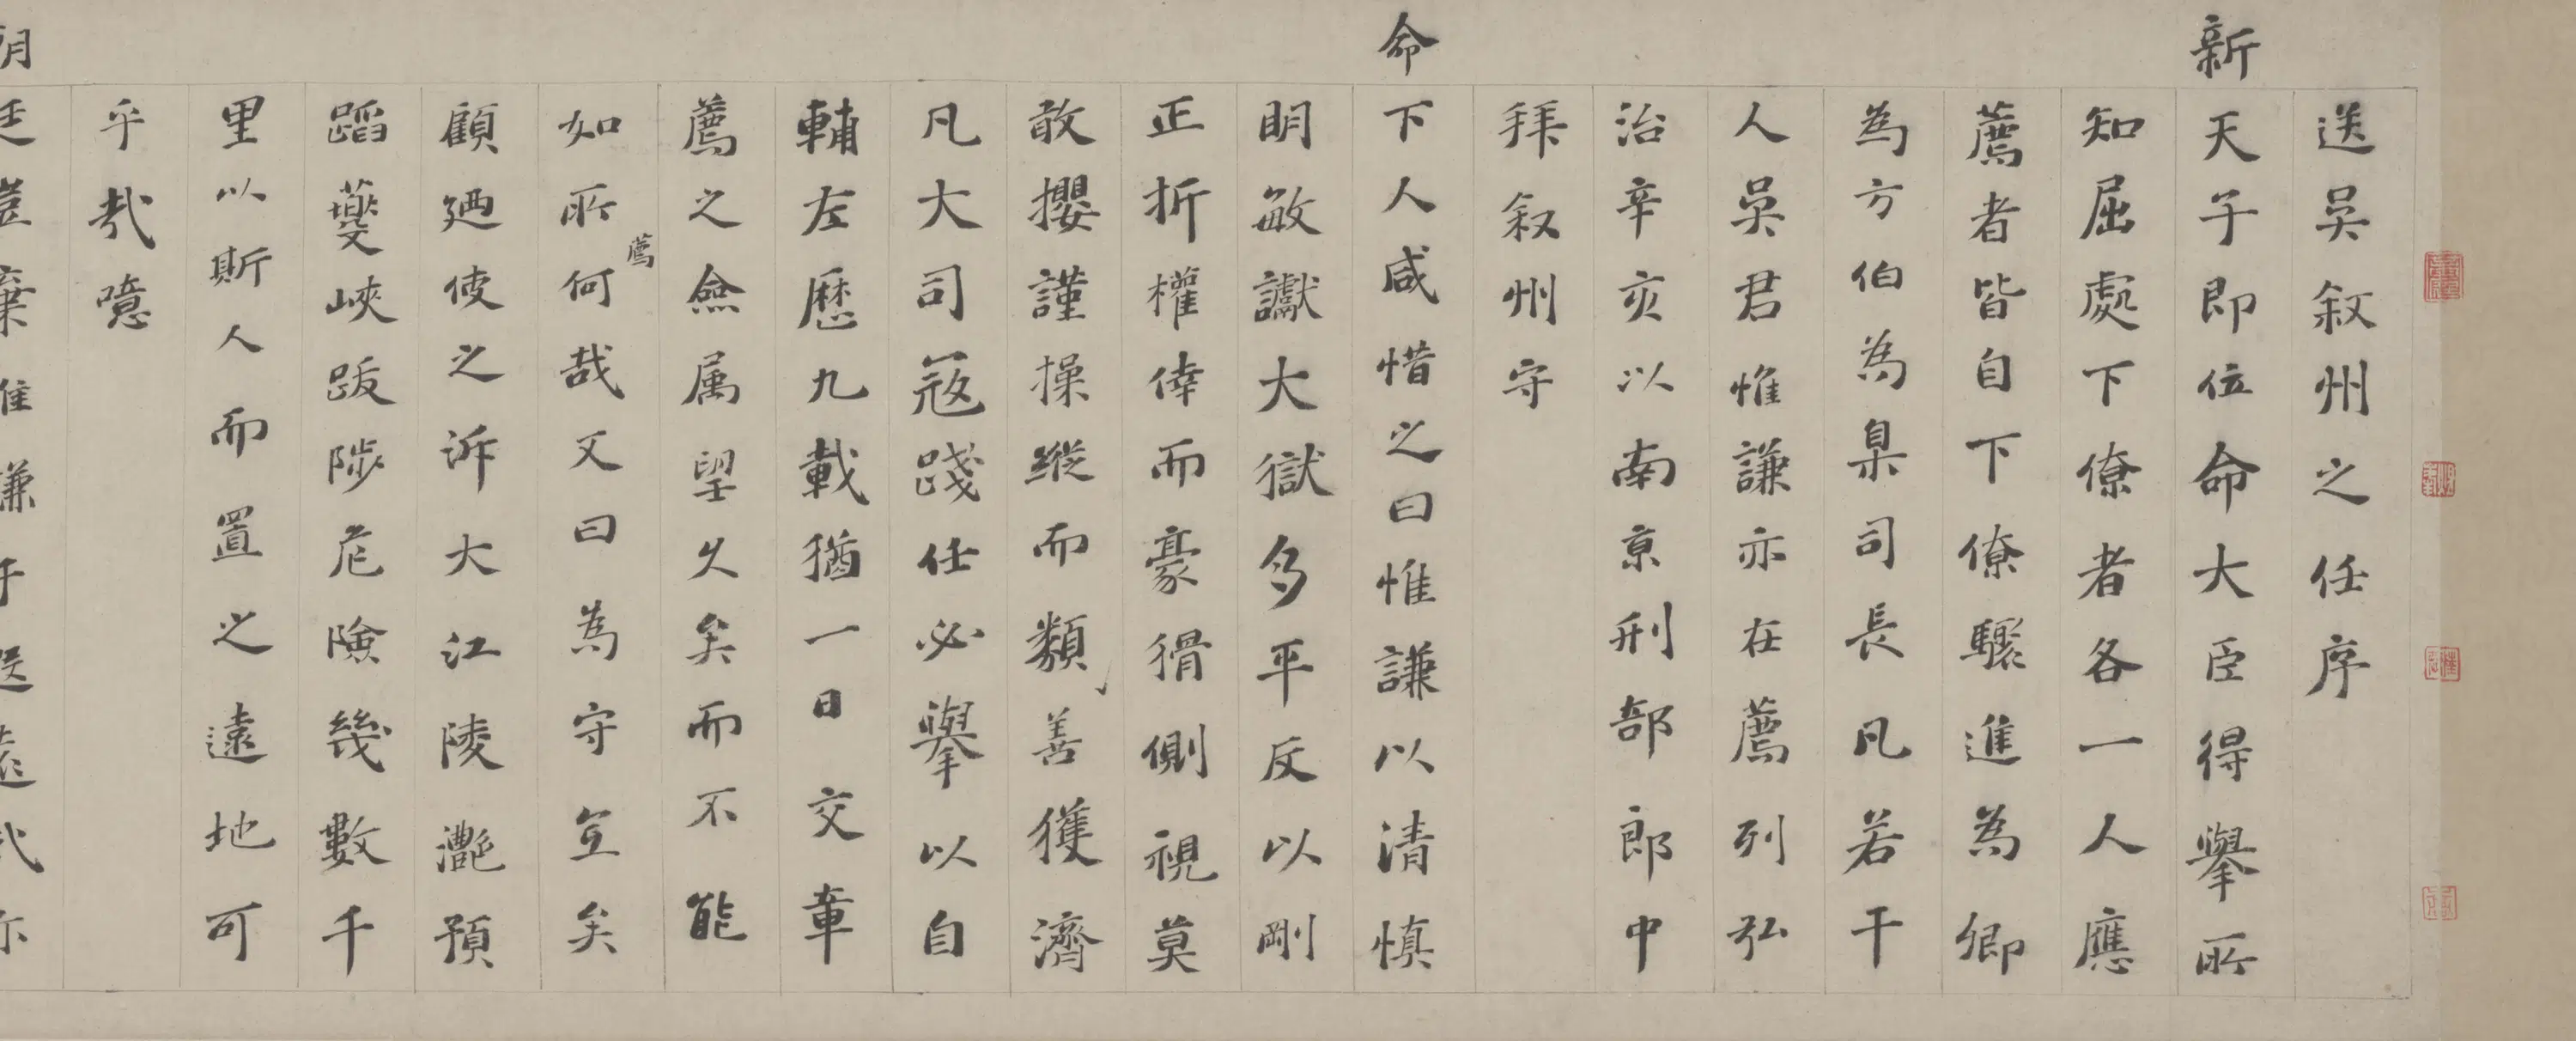 送吴叙州之任序
新天子即位命大臣得舉所
知屈處下僚者各一人應
薦者皆自下僚驟進為卿
為方伯為臬司長凡若干
人吴君惟謙亦在薦列弘
治辛亥以南京刑部郎中
拜叙州守
命下人咸惜之曰惟謙以清慎
明敏讞大獄多平反以剛
正折權倖而豪猾側視莫
敢攖謹操縱而類善獲濟
凡大司寇踐任必舉以自
輔左歷九載猶一日交章
薦之僉属望久矣而不能
如所薦何哉又曰為守宜矣
顧廼使之泝大江陵灔預
蹈夔峽跋陟危險幾數千
里以斯人而置之遠地可
乎哉噫
朝廷豈棄惟謙乎送遠